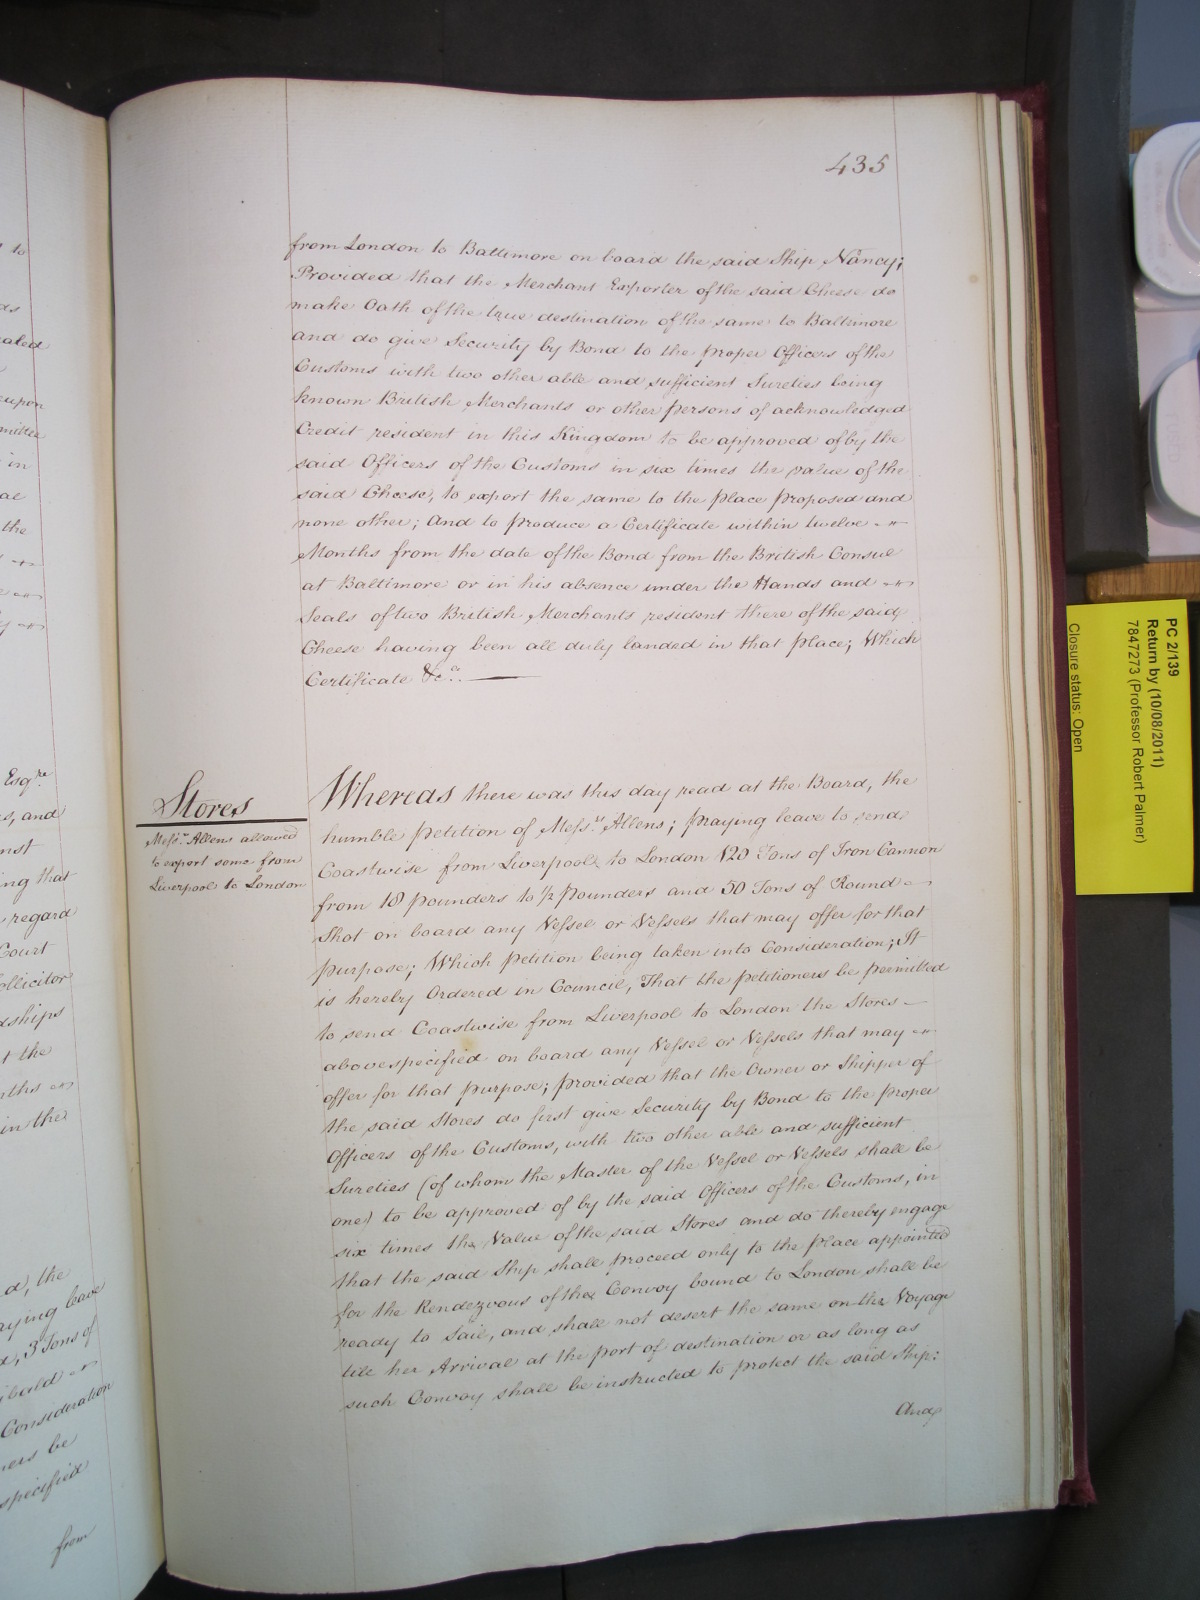 435
from London to Baltimore on board the said Ship Nancy;
Provided that the Merchant Exporter of the said Cheese do
make Oath of the true destination of the same to Baltimore
and do give Security by Bond to the proper Officers of the
Customs with two other able and sufficient Sureties being
known British Merchants or other persons of acknowledged
Credit resident in this Kingdom to be approved of by the
said Officers of the Customs in six times the value of the
said Cheese, to export the same to the place proposed and
none other; And to produce a Certificate within twelve
Months from the date of the Bond from the British Consul
at Baltimore or in his absence under the Hands and
Seals of two British Merchants resident there of the said
Cheese having been all duly landed in that place; Which
Certificate &c.a
Stores
Mess.rs Allens allowed
to export some from
Liverpool to London
Whereas there was this day read at the Board, the
humble petition of Mess.rs Allens; praying leave to send
Coastwise from Liverpool to London 120 Tons of Iron Cannon
from 18 pounders to 1/2 pounders and 50 Tons of Round
Shot on board any Vessel or Vessels that may offer for that
purpose; Which petition being taken into Consideration; It
is hereby Ordered in Council, That the petitioners be permitted
to send Coastwise from Liverpool to London the Stores
abovespecified on board any Vessel or Vessels that may
offer for that purpose; provided that the Owner or Shipper of
the said Stores do first give Security by Bond to the proper
Officers of the Customs, with two other able and sufficient
Sureties (of whom the Master of the Vessel or Vessels shall be
one) to be approved of by the said Officers of the Customs, in
six times the Value of the said Stores and do thereby engage
that the said Ship shall proceed only to the place appointed
for the Rendezvous of the Convoy bound to London shall be
ready to Sail, and shall not desert the same on the Voyage
till her Arrival at the port of destination or as long as
such Convoy shall be instructed to protect the said Ship:
And
to
upon
in
the
Esq.re
s, and
ing that
regard
Court
ollicitor
dships
t the
in the
d, the
aying leave
3 Tons of
ibald
Consideration
ners be
specified
from
PC 2/139
Return by (10/08/2011)
7847273 (Professor Robert Palmer)
Closure status: Open